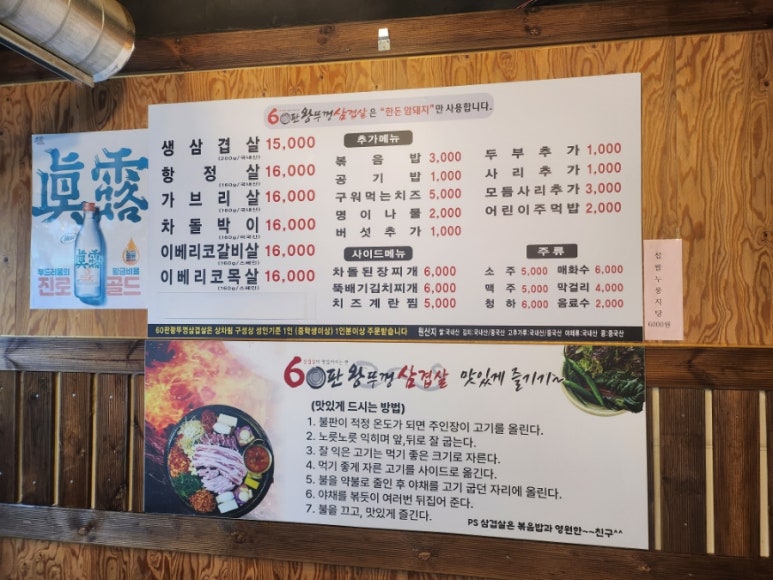 60판왕뚜껑삼겹살은 "한돈 암퇘지"만 사용합니다.
생삼겹살 15,000
(200g/국내산)
항정살 16,000
(160g/국내산)
가브리살 16,000
(160g/국내산)
차돌박이 16,000
이베리코갈비살 16,000
(160g/스페인)
이베리코목살 16,000
(160g/스페인)
추가메뉴
볶음밥 3,000
공기밥 1,000
구워먹는치즈 5,000
명이나물 2,000
버섯추가 1,000
두부추가 1,000
사리추가 1,000
모듬사리추가 3,000
어린이주먹밥 2,000
사이드메뉴
차돌된장찌개 6,000
뚝배기김치찌개 6,000
치즈계란찜 5,000
주류
소주 5,000 매화수 6,000
맥주 5,000 막걸리 4,000
청하 6,000 음료수 2,000
60판왕뚜껑삼겹살은 상차림 구성상 성인기준 1인 (중학생이상) 1인분이상 주문받습니다
원산지 쌀:국내산 김치:국내산/중국산 고추가루:국내산/중국산 야채류:국내산 콩:중국산
眞露
부드러움의 황금비율
진로 골드
6000원
60판왕뚜껑삼겹살 맛있게 즐기기~
(맛있게 드시는 방법)
1. 불판이 적정 온도가 되면 주인장이 고기를 올린다.
2. 노릇노릇 익히며 앞,뒤로 잘 굽는다.
3. 잘 익은 고기는 먹기 좋은 크기로 자른다.
4. 먹기 좋게 자른 고기를 사이드로 옮긴다.
5. 불을 약불로 줄인 후 야채를 고기 굽던 자리에 올린다.
6. 야채를 볶듯이 여러번 뒤집어 준다.
7. 불을 끄고, 맛있게 즐긴다.
PS 삼겹살은 볶음밥과 영원한~~친구^^